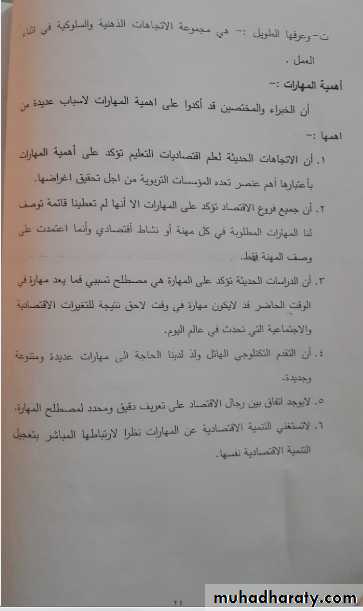 ت- وعرفها الطويل :- هي مجموعة الاتجاهات الذهنية والسلوكية في اثناء
العمل .
أهمية المهارات :-
أن الخبراء والمختصين قد أكدوا على اهمية المهارات لاسباب عديدة من
اهمها :-
١. أن الاتجاهات الحديثة لعلم اقتصاديات التعليم تؤكد على أهمية المهارات
بأعتبارها أهم عنصر تعده المؤسسات التربوية من اجل تحقيق اغراضها.
٢. أن جميع فروع الاقتصاد تؤكد على المهارات الا أنها لم تعطينا قائمة توصف
لنا المهارات المطلوبة في كل مهنة أو نشاط أقتصادي وأنما اعتمدت على
وصف المهنة فقط.
٣. أن الدراسات الحديثة تؤكد على المهارة هي مصطلح نسبي فما يعد مهارة في
الوقت الحاضر قد لايكون مهارة في وقت لاحق نتيجة للتغيرات الاقتصادية
والاجتماعية التي تحدث في عالم اليوم.
٤. أن التقدم التكنلوجي الهائل ولد لدينا الحاجة الى مهارات عديدة ومتنوعة
وجديدة.
٥. لايوجد اتفاق بين رجال الاقتصاد على تعريف دقيق ومحدد لمصطلح المهارة.
٦. لاتستغني التنمية الاقتصادية عن المهارات نظرا لارتباطها المباشر بتعجيل
التنمية الاقتصادية نفسها.
muhadharaty.com